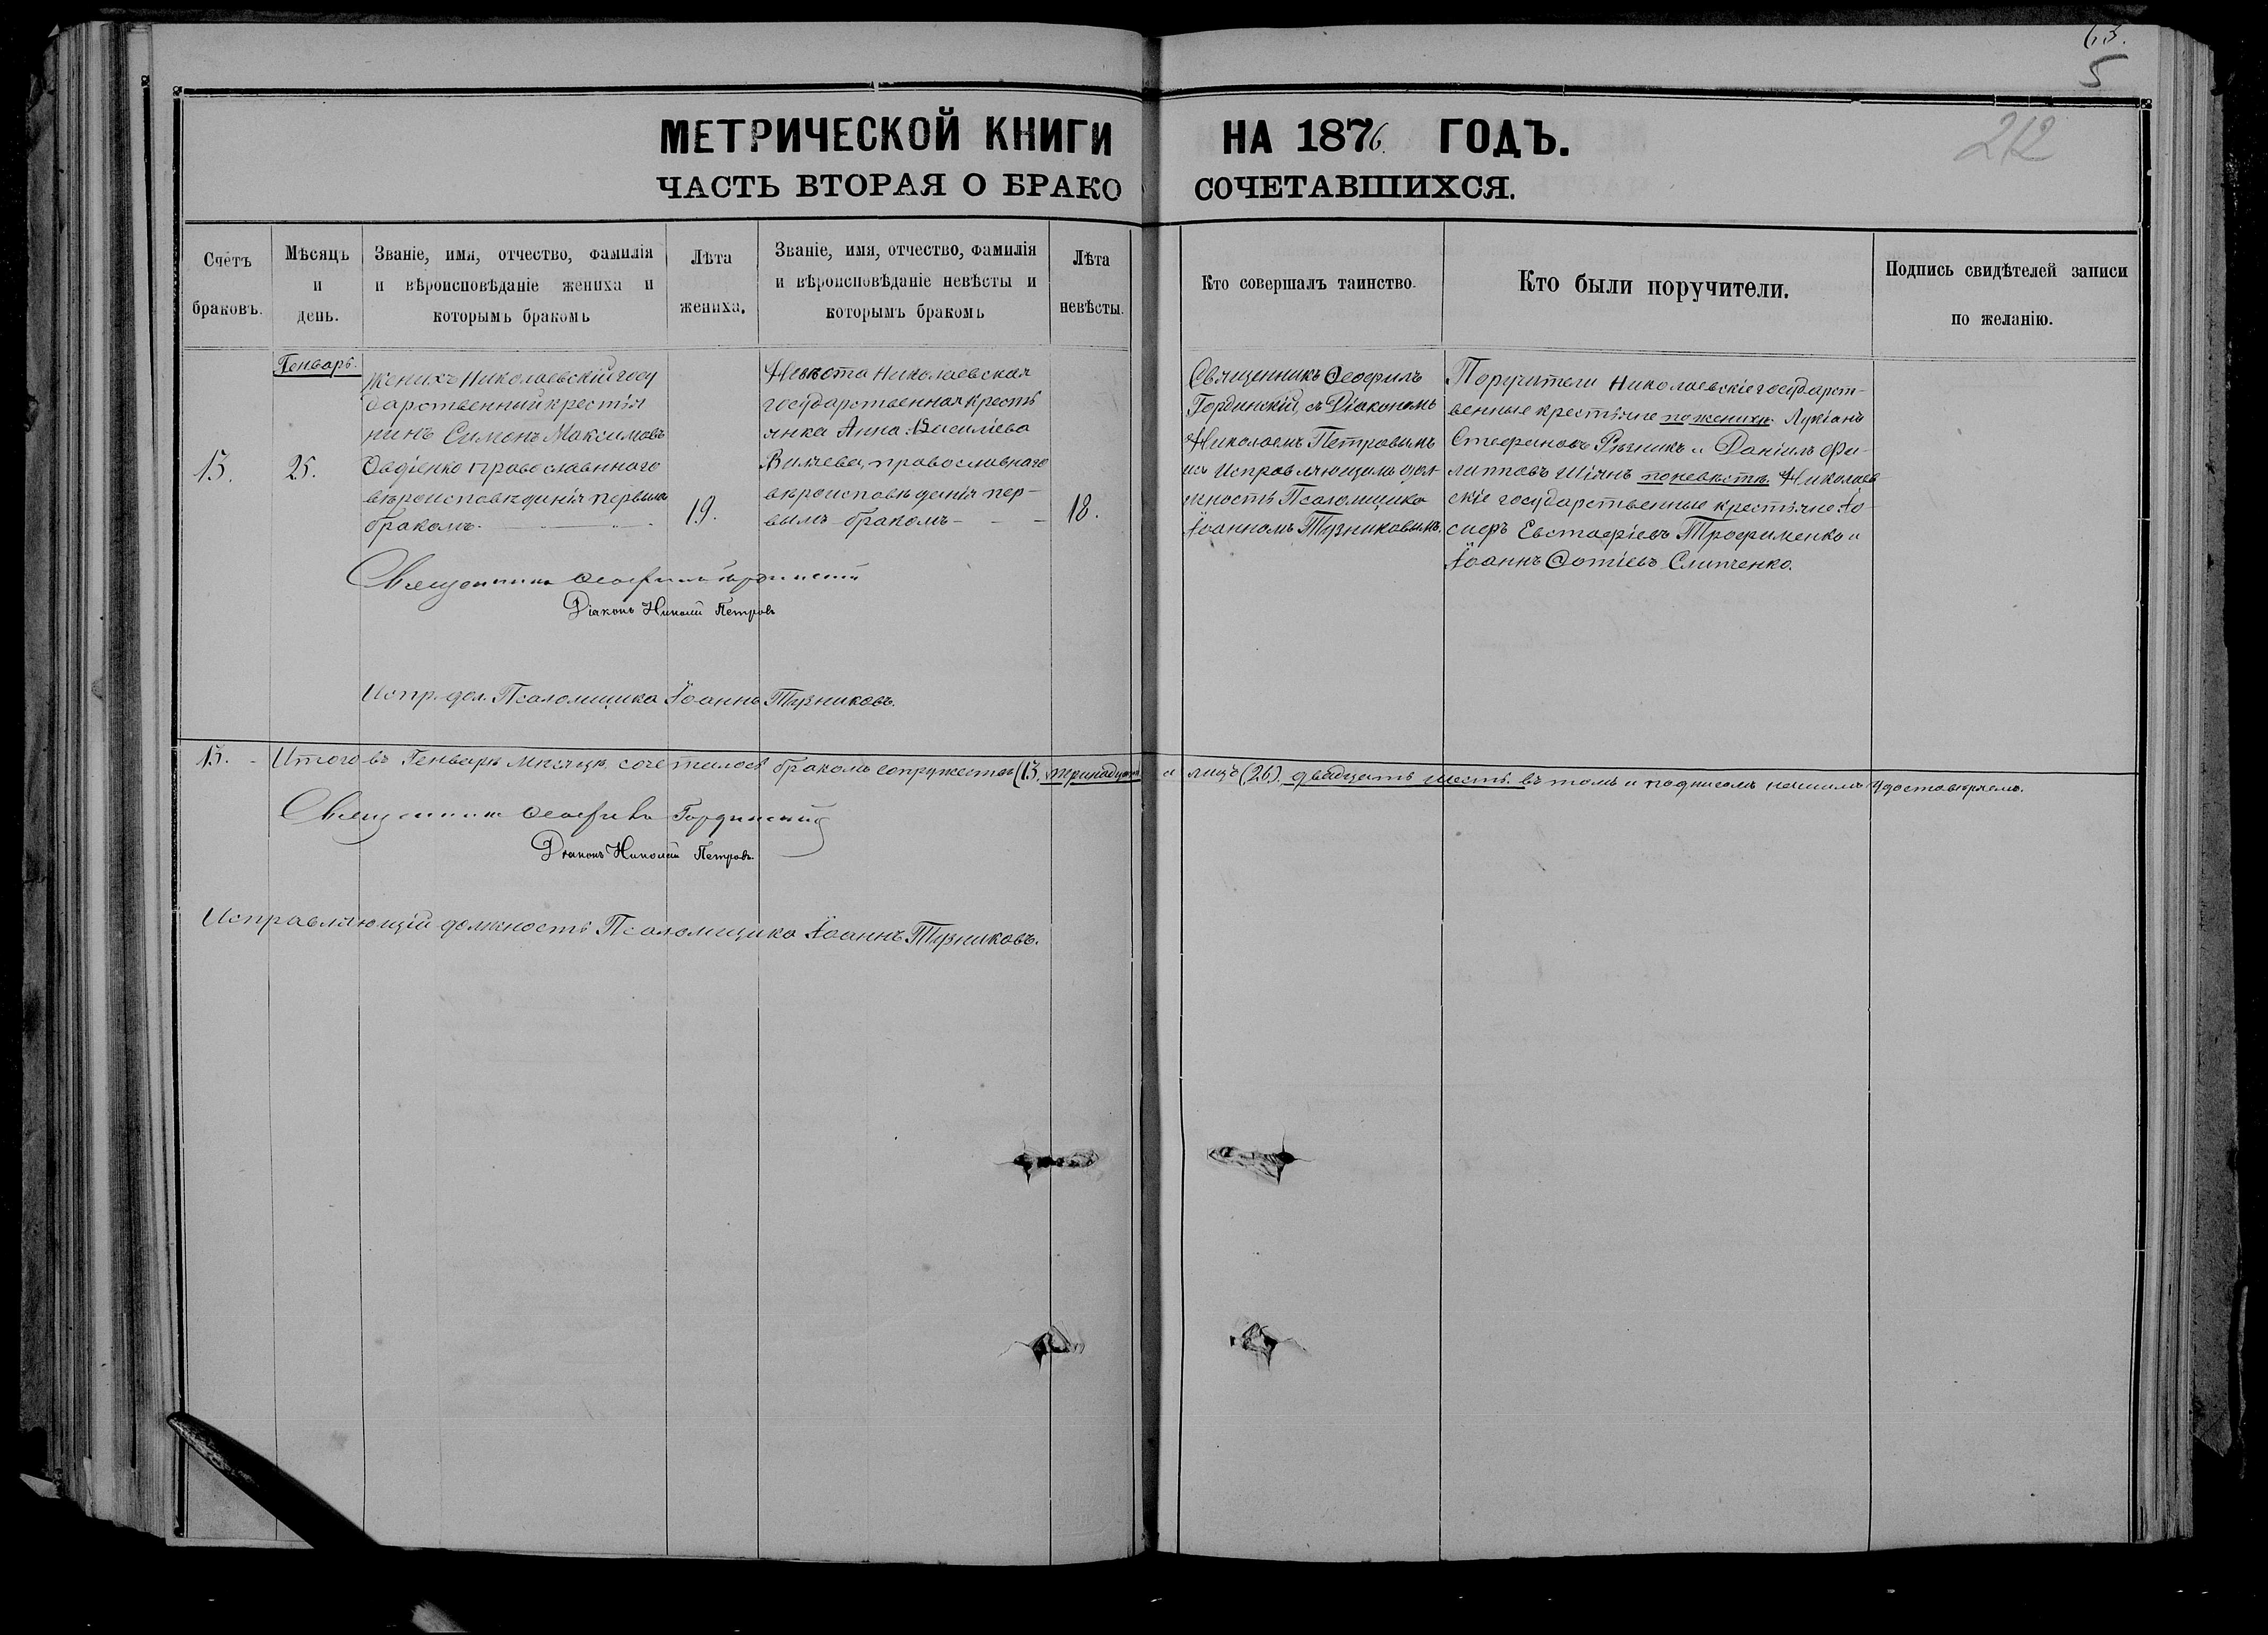 63.
5
212
МЕТРИЧЕСКОЙ КНИГИ НА 1876. ГОДЪ.
ЧАСТЬ ВТОРАЯ О БРАКОСОЧЕТАВШИХСЯ.
Счетъ
браковъ.
Мѣсяцъ
и
день.
Званіе, имя, отчество, фамилія
и вѣроисповѣданіе жениха и
которымъ бракомъ
Лѣта
жениха.
Званіе, имя, отчество, фамилія
и вѣроисповѣданіе невѣсты и
которымъ бракомъ
Лѣта
невѣсты.
Кто совершалъ таинство.
Кто были поручители.
Подпись свидѣтелей записи
по желанію.
13.
Генварь.
25.
Женихъ Николаевскій госу
дарственный крестья
нинъ Симонъ Максимовъ
Овдіенко православнаго
вѣроисповѣданія первымъ
бракомъ.
19.
Невѣста Николаевская
государственная кресть
янка Анна Василіева
православнаго
вѣроисповѣданія пер-
вымъ бракомъ
18.
Священникъ Ѳеофилъ
Гординскій, съ Діакономъ
Николаемъ Петровымъ
и Исправляющимъ дол-
жность Псаломщика
Іоанномъ Тузниковымъ.
Поручители Николаевскіе государст-
венные крестьяне по женихѣ. Лукіанъ
Стефановъ Рѣзникъ и Даніилъ Фи-
липповъ по невѣстѣ. Николаев
скіе государственные крестьяне Іо
сифъ Евстафіевъ Трофименко и
Іоаннъ Фотіевъ Слипченко.
Священникъ Ѳеофилъ Гординскій
Діаконъ Николай Петровъ
Испр. дол. Псаломщика Іоаннъ Тузниковъ.
13. Итого въ Генварѣ мѣсяцѣ сочеталось бракомъ супружествъ (13) тринадцать а лицъ (26) двадцать шесть. въ томъ и подписомъ нашимъ удостовѣряемъ.
Священникъ Ѳеофилъ Гординскій
Діаконъ Николай Петровъ.
Исправляющій должность Псаломщика Іоаннъ Тузниковъ.